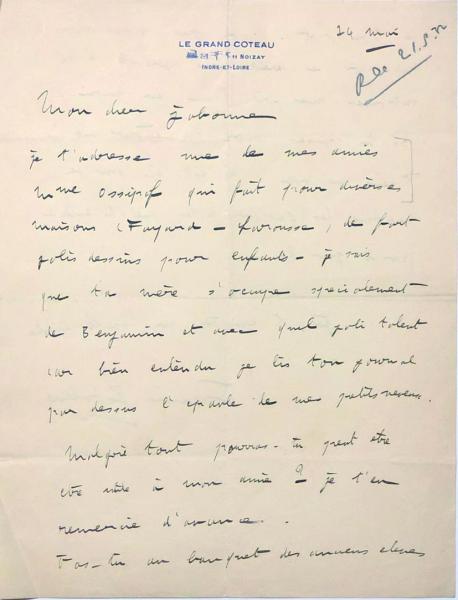 LE GRAND COTEAU
NOIZAY
INDRE-ET-LOIRE
24 mai
Mon cher Jaboune
je t'adresse une de mes amies
Mme Ossipof qui fait pour diverses
maisons (Fayard - Larousse, de fort
jolis dessins pour enfants - je sais
que ta mère s'occupe spécialement
de Benjamin et avec quel joli talent
car bien entendu je lis ton journal
par dessus l'épaule de mes petits neveux.
Malgré tout pourras-tu peut être
être utile à mon amie ? je t'en
remercie d'avance.
Vas-tu au banquet des anciens élèves